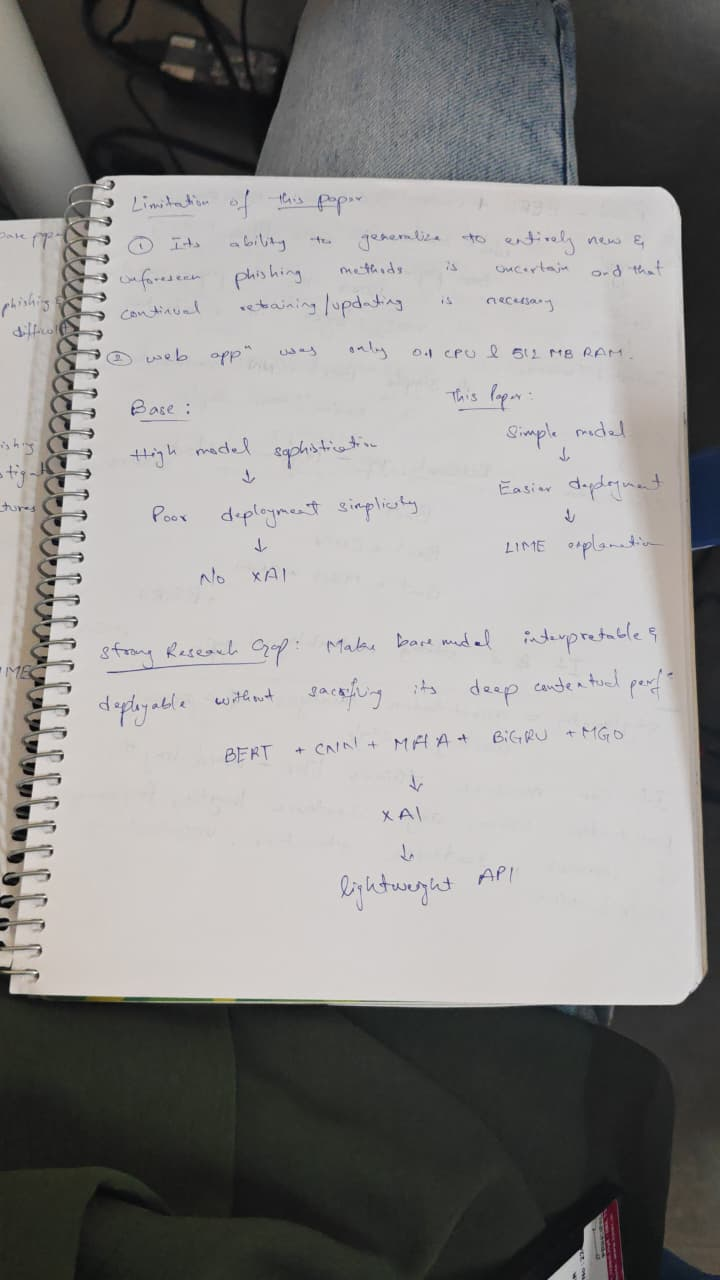 Limitation of this paper
① Its ability to generalize to entirely new &
unforeseen phishing methods is uncertain and that
continual retaining/updating is necessary
② web appⁿ was only 0.1 CPU & 512 MB RAM.
Base :
High model sophistication
↓
Poor deployment simplicity
↓
No XAI
This Paper:
Simple model
↓
Easier deployment
↓
LIME explanation
Strong Research Gap: Make base model interpretable &
deployable without sacrificing its deep contextual perfⁿ
BERT + CNN + MHA + BiGRU + MGO
↓
XAI
↓
lightweight API
phishing
difficult